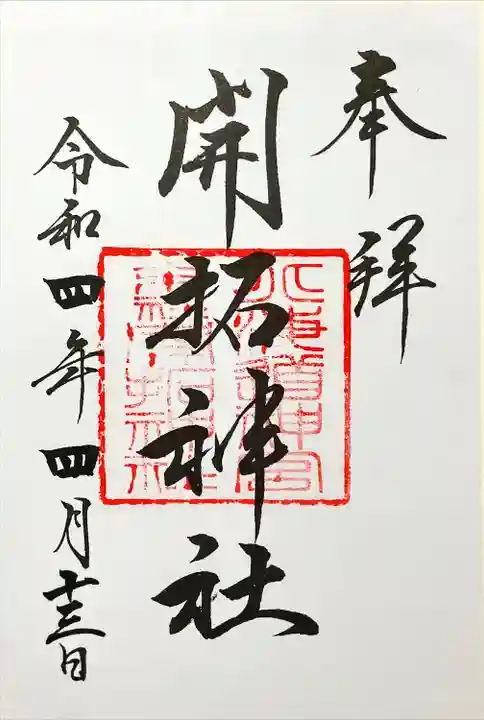 奉拝
開拓神社
北海道神宮
末社開拓神社
令和四年四月十三日